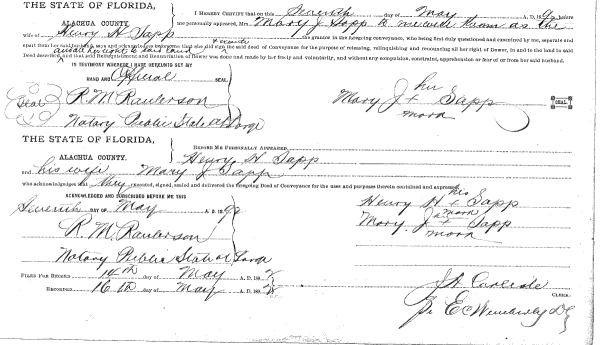 THE STATE OF FLORIDA,
ALACHUA COUNTY.
I HEREBY CERTIFY that on this Seventh day of May A. D. 189 before
me personally appeared, Mary J Sapp to me well known as the
wife of Henry H Sapp the grantor in the foregoing conveyance, who being first duly questioned and examined by me, separate and
apart from her said husband, says and acknowledges that she did sign the said deed of Conveyance for the purpose of releasing, relinquishing and renouncing all her right of Dower, in and to the land in said
Deed described, and that said Relinquishment and Renunciation of Dower was done and made by her freely and voluntarily, and without any compulsion, constraint, apprehension or fear of or from her said husband.
IN TESTIMONY WHEREOF, I HAVE HEREUNTO SET MY
HAND AND Official SEAL.
Seal
R. M. Rauterson
Notary Public State at Large
her
Mary J + Sapp
mark
SEAL.
THE STATE OF FLORIDA,
ALACHUA COUNTY.
BEFORE ME PERSONALLY APPEARED
Henry H Sapp
and his wife Mary J Sapp
who acknowledges that they executed, signed, sealed and delivered the foregoing Deed of Conveyance for the uses and purposes therein contained and expressed
ACKNOWLEDGED AND SUBSCRIBED BEFORE ME THIS
Seventh DAY OF May A. D. 189
R. M. Rauterson
Notary Public State at Large
his
Henry H + Sapp
mark
Mary J + Sapp
mark
FILED FOR RECORD 14th day of May A. D. 189
RECORDED 16th day of May A. D. 189
J. A. Carlisle
CLERK.
Pr E C Wimberly DC